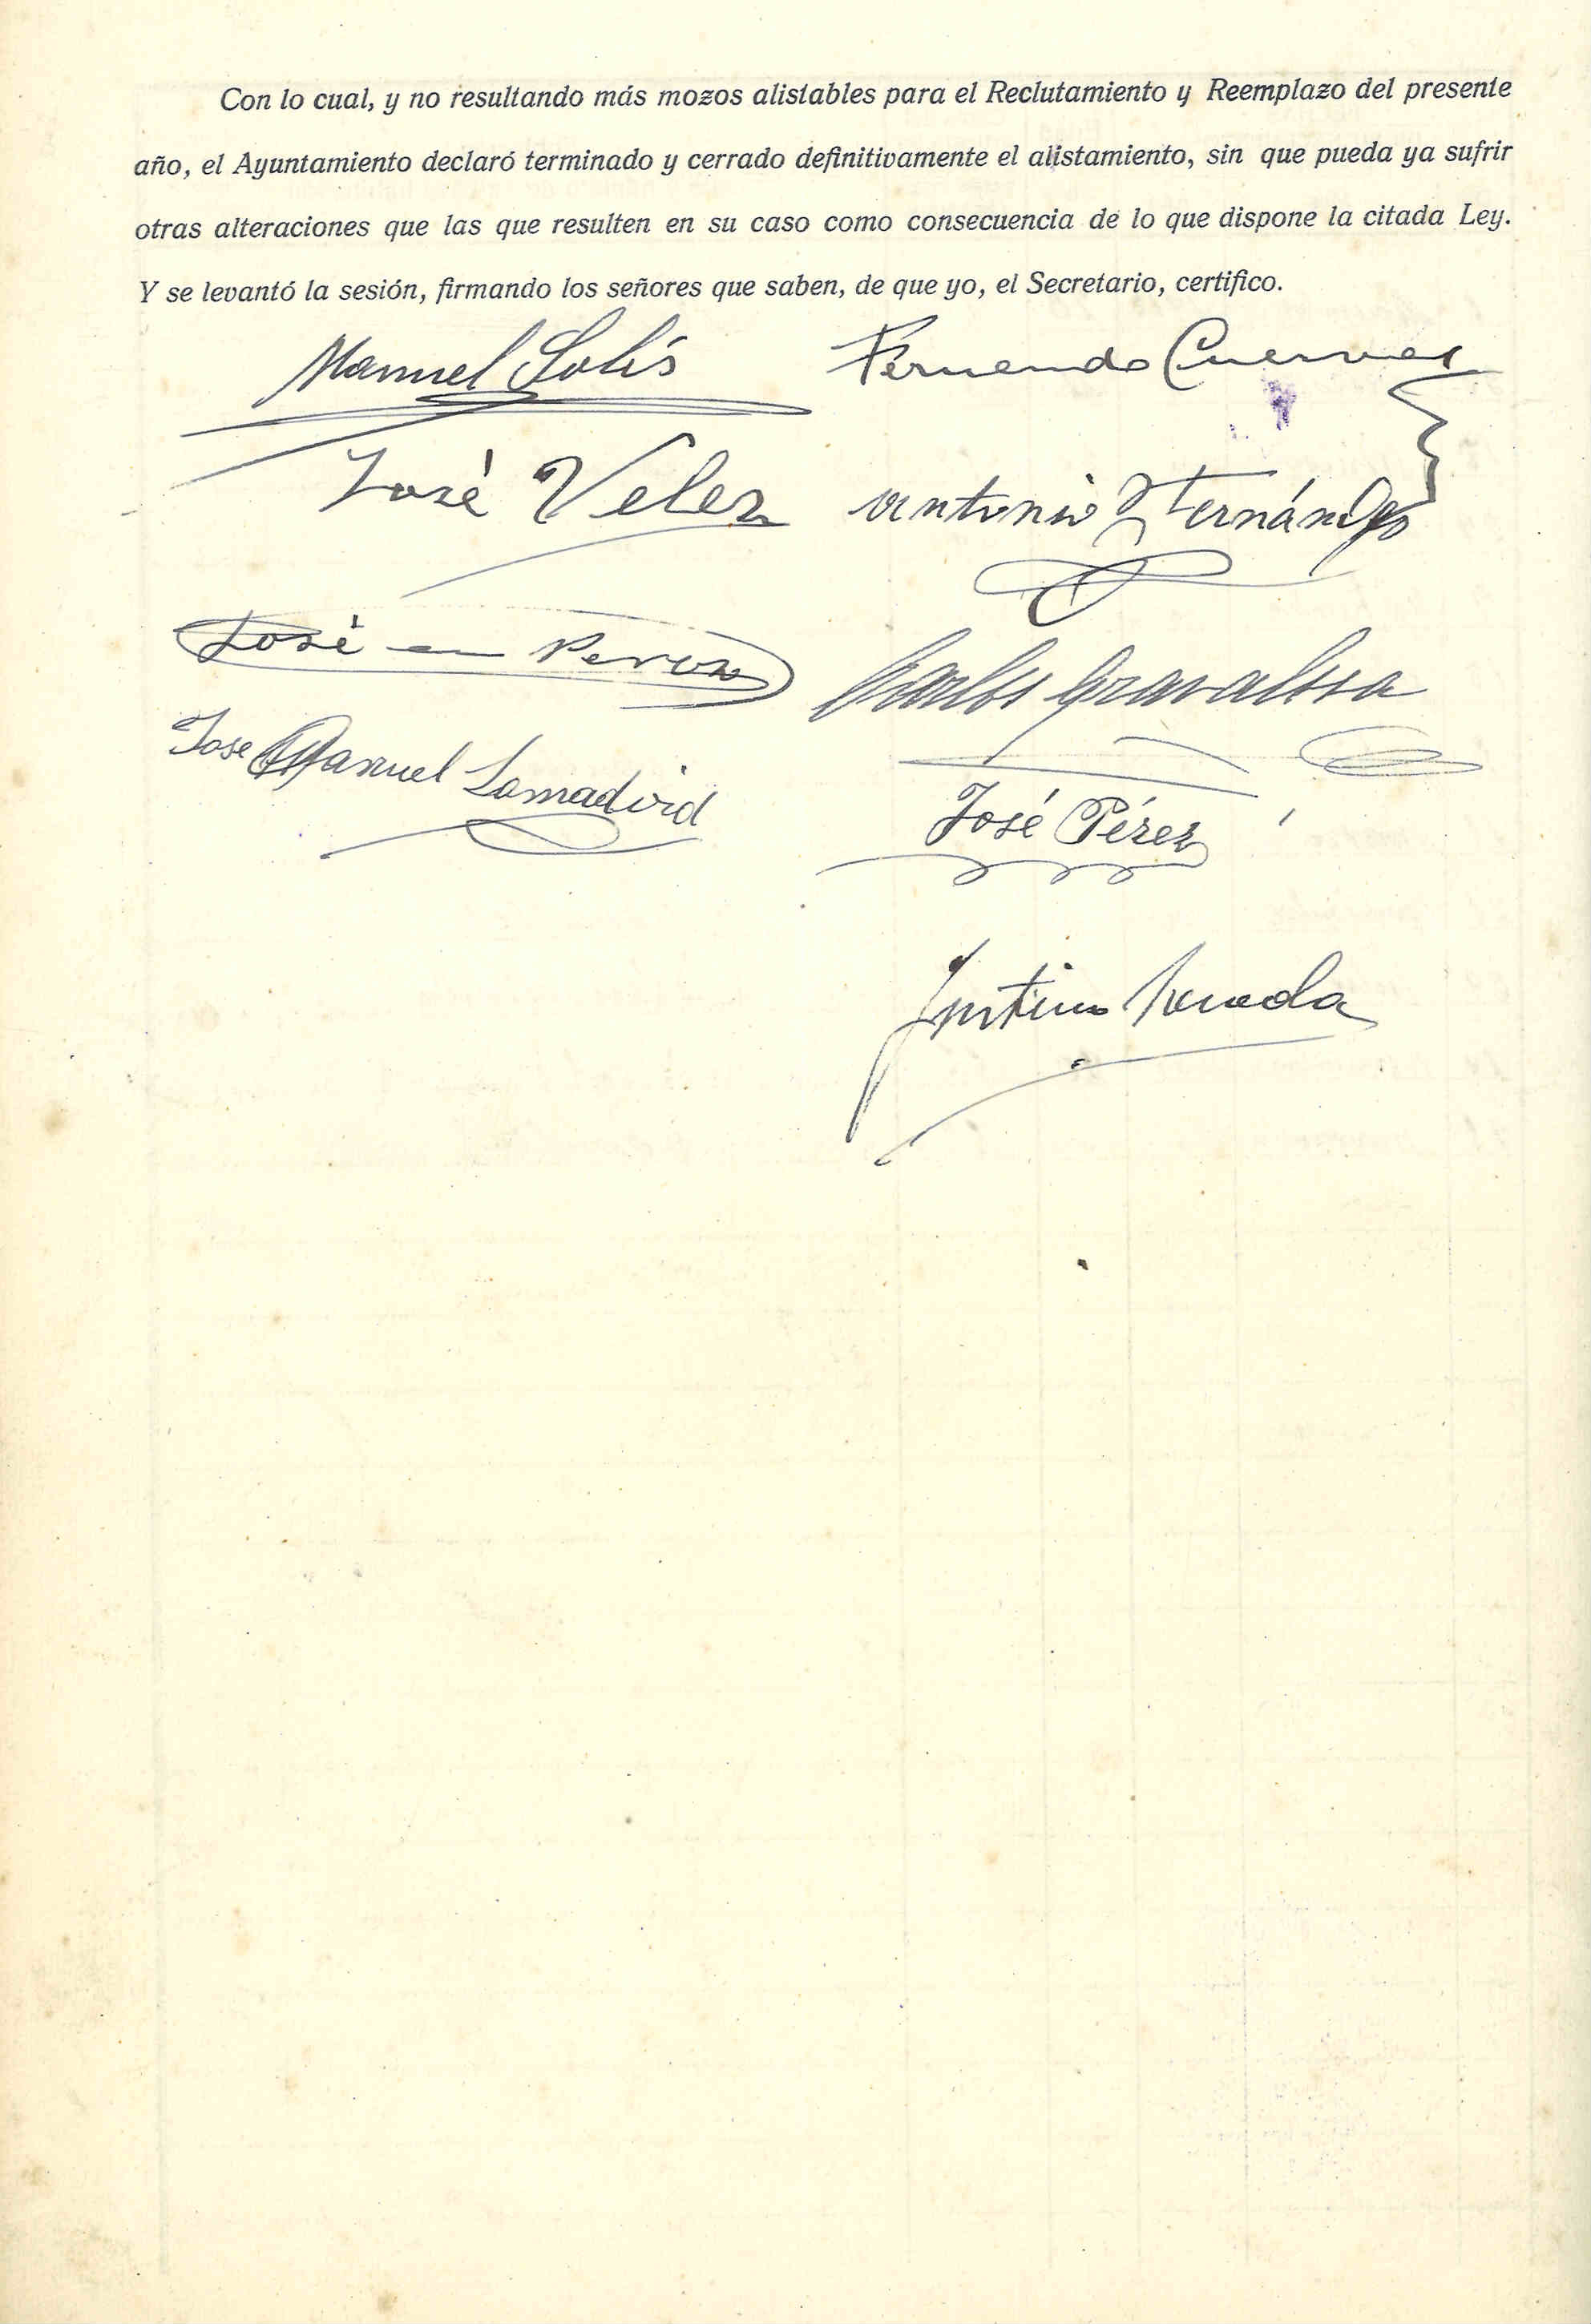 Con lo cual, y no resultando más mozos alistables para el Reclutamiento y Reemplazo del presente
año, el Ayuntamiento declaró terminado y cerrado definitivamente el alistamiento, sin que pueda ya sufrir
otras alteraciones que las que resulten en su caso como consecuencia de lo que dispone la citada Ley.
Y se levantó la sesión, firmando los señores que saben, de que yo, el Secretario, certifico.
Manuel Solís Fernando Cuervas
José Velez Antonio Fernández
José Carlos
Jose Manuel Lamadrid
José Pérez
Justino